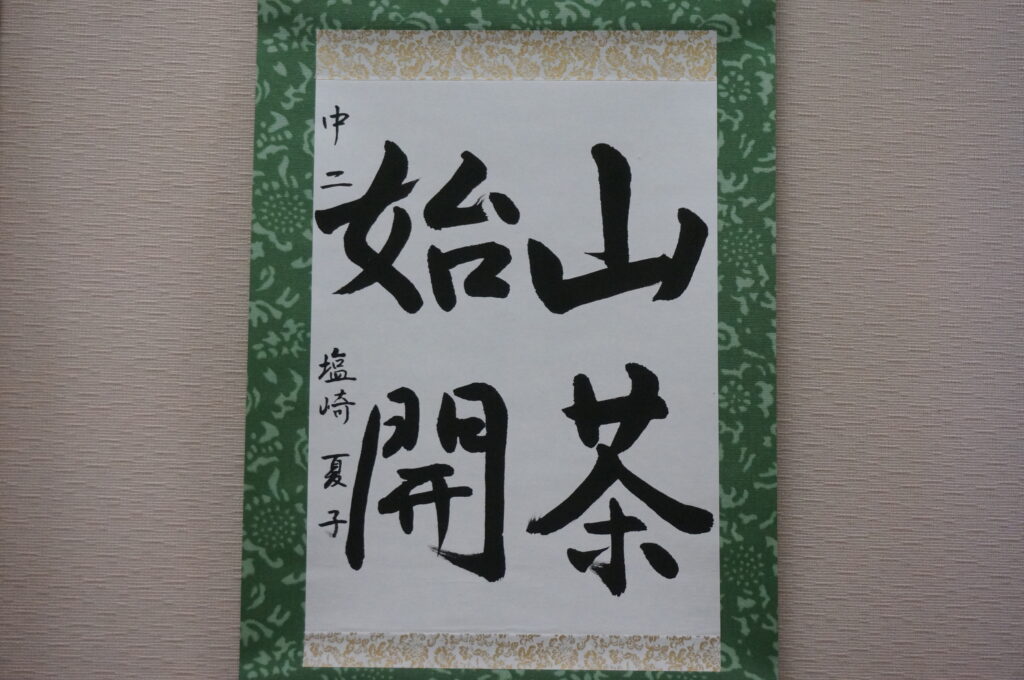 山茶
始開
中二 塩崎 夏子